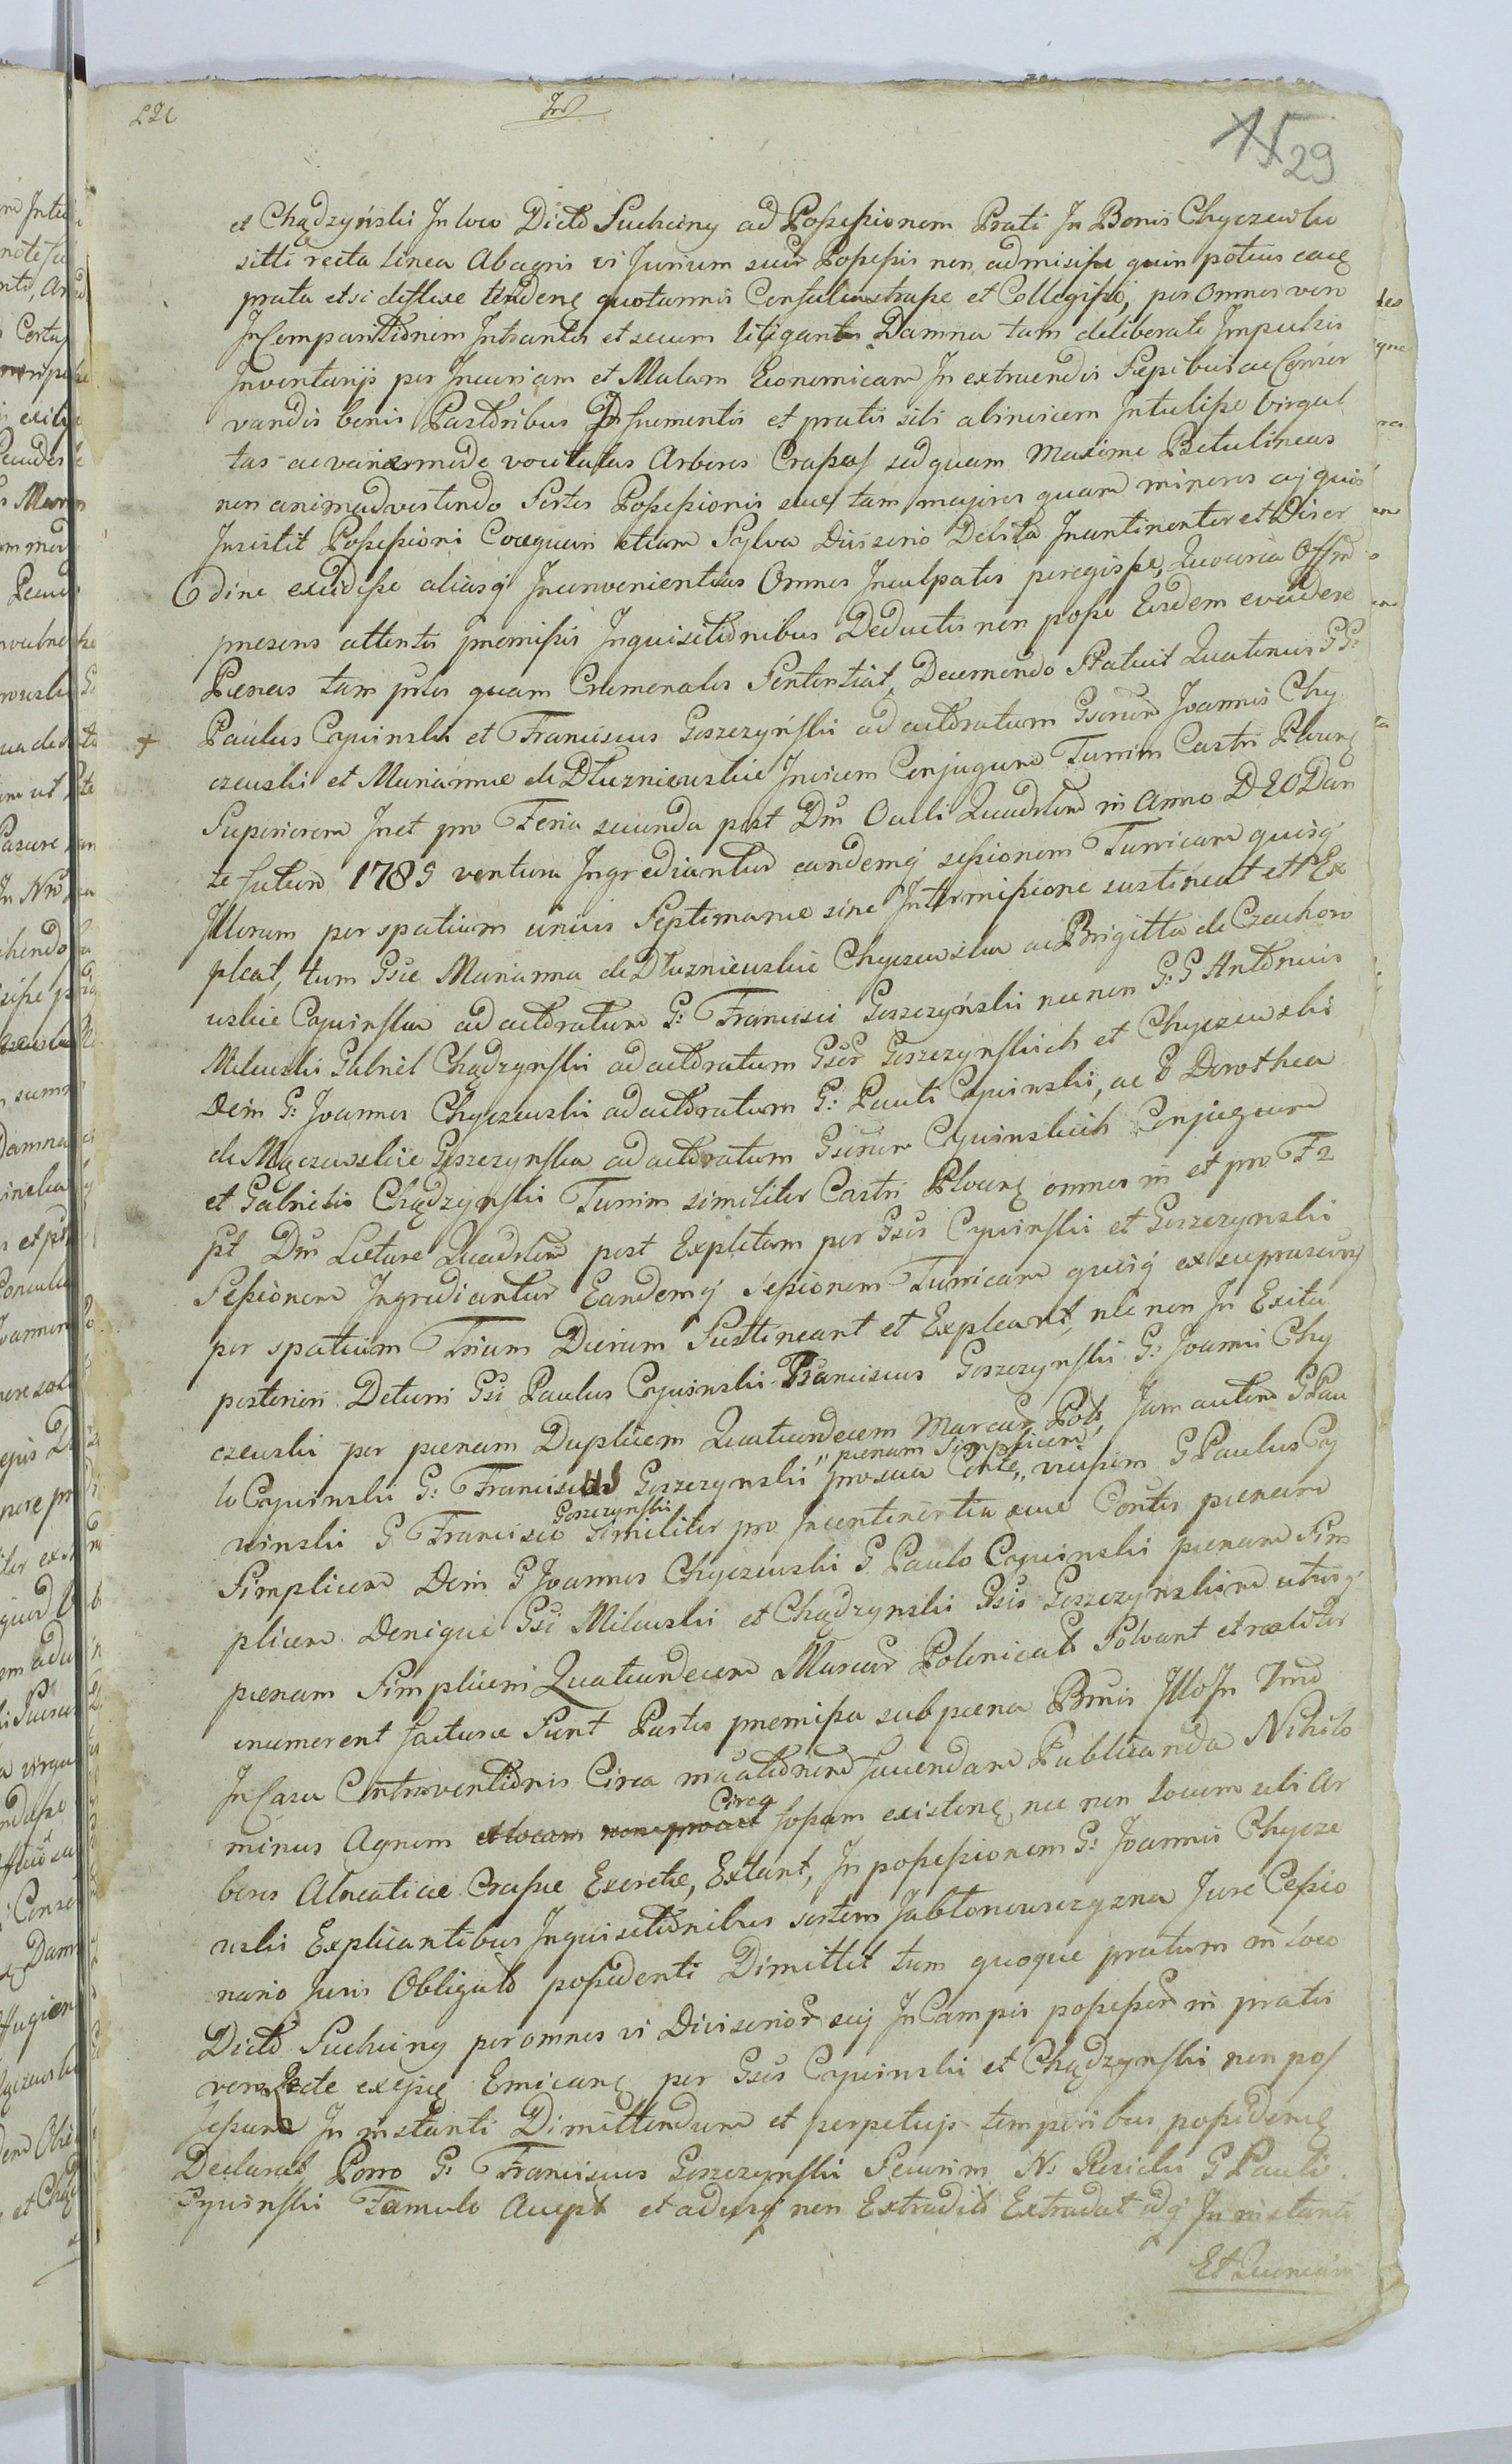 29
et Chądzyński In loco Dicto Suchciny ad Possessionem Prati In Bonis Chyczewko
sitti recta linea Abagris vi Jurium suor Possessis non admisisse quin potius eaq
prata etsi deflexe tendenę quotannis Consulcastrasse et Collegisse, per omnes vero
In Comparitionem Intrantes et secum litigantes Damna tam deliberate Impulsis
Inventarijs per Incuriam et Malam Economicam In extruendis Sepibus ac Conser
vandis bonis Pastoribus In frumentis et pratis sibi abinvicem Intulisse Virgul
tas ac variermode vocitatas Arbores Crassas sed quam Maxime Betulineas
non animadvertendo Sortes Possessionis suae tam majores quam minores
Insistit Possessioni Coaequari etiam Sylva Divisorio Debita Incontinenter et Disor
dine excidisse aliasq Inconvenientias Omnes Inculpatis peregisse, Quocirca Offm
presens attentis premissis Inquisitionibus Deductis non posse Eosdem evadere
Pienas tam quam Criminales Sententiat, Decernendo Statuit Quatenus GG:
Paulus Cywinski et Franciscus Goszczyński ad actoratum Gsorum Joannis Chy
czewski et Marianna de Dłuzniewskie Invicem Conjugum Turrim Castri Plocenę
Superiorem Inet pro Feria secunda post Dm Oculi Quadrlem in Anno D 20 Dan
te futuro 1789 ventura Ingrediantur eandemq sessionem Turricam quisq
Illorum per spatium unius Septimanae sine Intermissione sustineat et Ex
pleat, tum Gsae Marianna de Dłuzniewskie Chyczewska ac Brigitta de Czachoro
wskie Cywinska ad actoratum G: Francisci Goszczyński necnon G:G Antonius
Milewski Gabriel Chądzynski ad actoratum Gsor Goszczynskich et Chyczewski
Dein G: Joannes Chyczewski ad actoratum G: Pauli Cywinski, ac G Dorothea
de Mączewskie Goszczynska ad actoratum Gsorum Cywinskich Conjugum
et Gabrielis Chądzynski Turrim similiter Castri Plocenę omnes in et pro F2
pt Dm Laetare Quadrlem post Expletam per Gsos Cywinski et Goszczynski
Sessionem Ingrediantur Eandemq Sessionem Turricam quisq ex supra
per spatium Trium Dierum Sustineant et Expleant, nec non In Exitu
posteriori Deturri Gsi Paulus Cywinski Franciscus Goszczynski G: Joanni Chy
czewski per pienam Duplicem Quatuordecem Marcar Pols, Jam autem G Pau
lo Cywinski G: Franciscus Goszczynski "pienam Simplicem" pro sua Conte, vicissim G Paulus Cy
winski G Francisco Goszczynski similiter pro Incontinentia suae Contis pienam
Simplicem Dein G Joannes Chyczewski G Paulo Cywinski pienam Sim
plicem Denique Gsi Milewski et Chądzynski Gsis Goszczynskim utrisq
pienam Simplicem Quatuordecem Marcar Polonicals Solvant et realiter
enumerent facturae Sunt Partes premissa sub piena Bnnis In
In Casu Controventionis Circa Juvendam Publicanda Nihilo
minus Agrum Circa fossam existenę nec non locum ubi Ar
bores Alneaticae Crassae Exerctae, Extant, In possessionem G: Joannis Chycze
wski Explicantibus Inquisitionibus sortem Jabłonowszczyzna Jure Cessio
nario Juris Obligato possidenti Dimittet tum quoque pratum in loco
Dicto Suchciny per omnes vi Divisorior suij In Campis possessor in pratis
vero Recte Emicanę per Gsos Cywinski et Chądzynski non pos
sessum In instanti Dimittendum et perpetujs temporibus possidenę
Declarat, Porro G: Franciscus Goszczynski Securim N: G Pauli
Cywinski Famulo Accept et adusq non Extradit Extradat idq In instanti
Et Quoniam